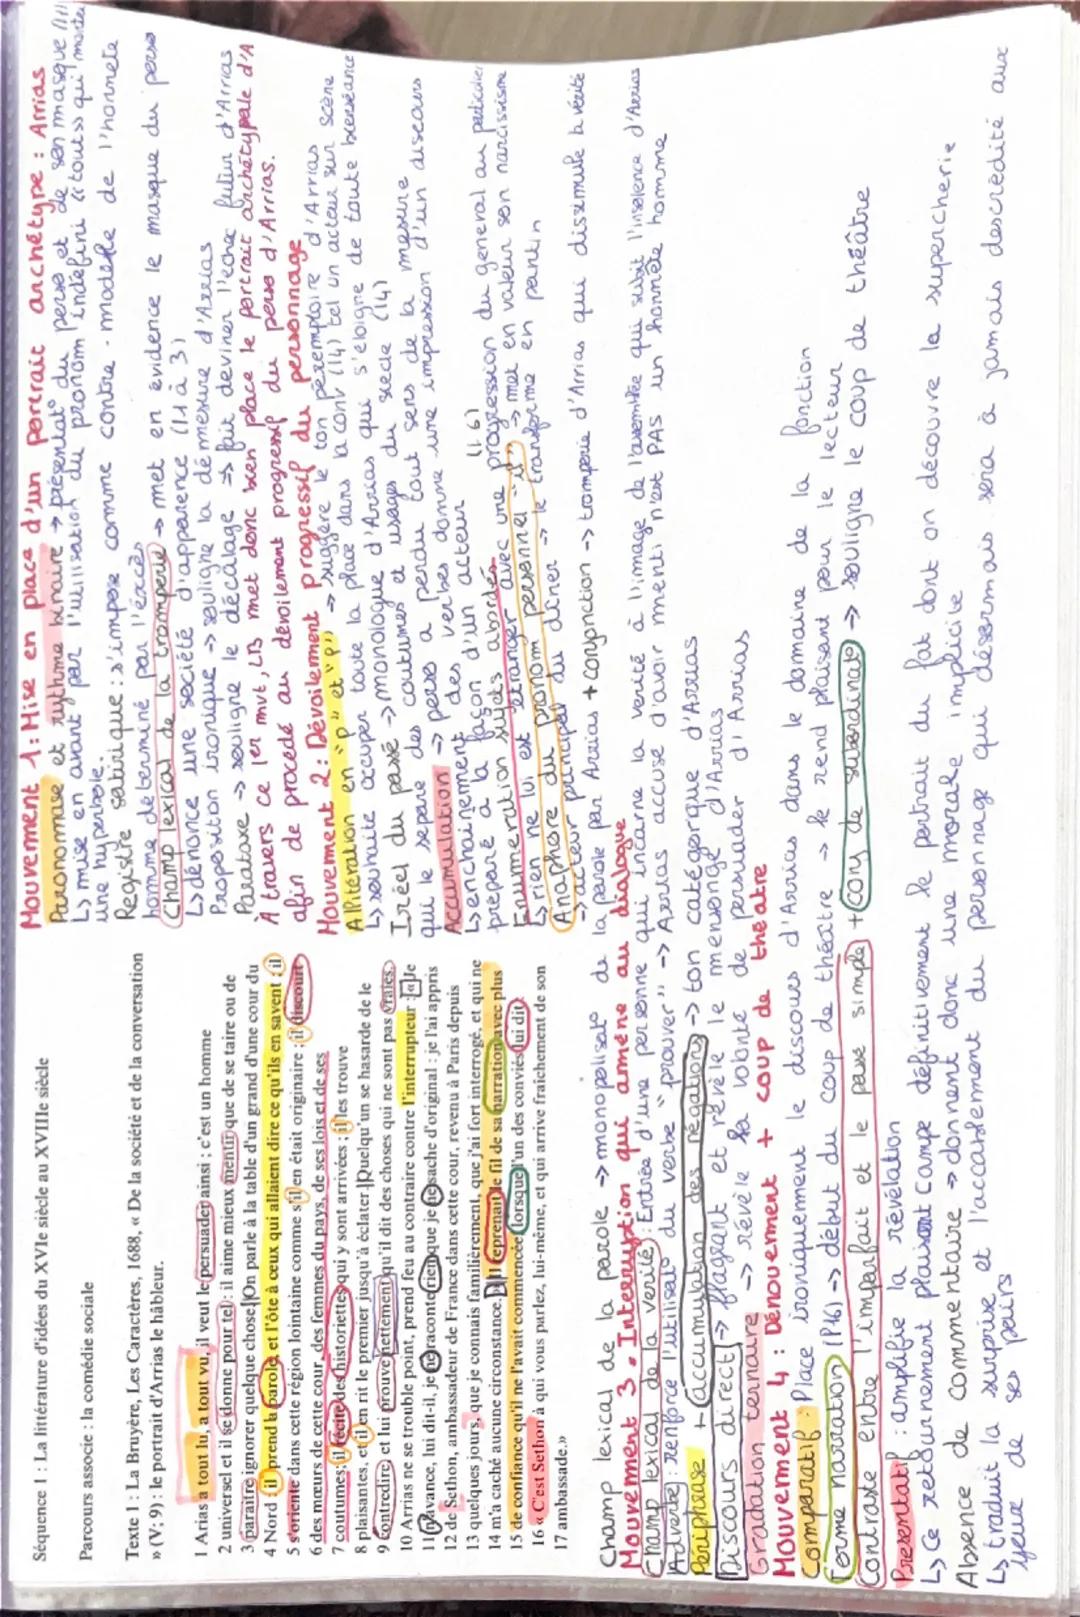 Séquence 1 : La littérature d'idées du XVIe siècle au XVIIIe siècle
Parcours associe : la comédie sociale
Texte 1 : La Bruyère, Les Caractères, 1688, « De la société et de la conversation
» (V; 9) : le portrait d'Arrias le hâbleur.
1 Arias a tout lu, a tout vu, il veut le persuader ainsi ; c'est un homme
2 universel et il se donne pour tel : il aime mieux mentir que de se taire ou de
3 paraitre ignorer quelque chose. On parle à la table d'un grand d'une cour du
4 Nord : il prend la parole, et l'ôte à ceux qui allaient dire ce qu'ils en savent ; il
5 s'oriente dans cette région lointaine comme s'il en était originaire ; il discourt
6 des mœurs de cette cour, des femmes du pays, de ses lois et de ses
7 coutumes; il récite des historiettes qui y sont arrivées ; il les trouve
8 plaisantes, et il en rit le premier jusqu'à éclater. Quelqu'un se hasarde de le
9 contredire, et lui prouve nettement qu'il dit des choses qui ne sont pas vraies.
10 Arrias ne se trouble point, prend feu au contraire contre l'interrupteur : « Je
11 n'avance, lui dit-il, je ne raconte rien que je ne sache d'original : je l'ai appris
12 de Sethon, ambassadeur de France dans cette cour, revenu à Paris depuis
13 quelques jours, que je connais familièrement, que j'ai fort interrogé, et qui ne
14 m'a caché aucune circonstance. » Il reprenait le fil de sa narration avec plus
15 de confiance qu'il ne l'avait commencée, lorsque l'un des conviés lui dit :
16 « C'est Sethon à qui vous parlez, lui-même, et qui arrive fraichement de son
17 ambassade.»
Mouvement 1 : Mise en place d'un portrait archétype : Arrias
Paronomase et rythme binaire → présentat° du perso et de son masque
L> mise en avant par l'utilisation du pronom indéfini « tout »
une hyperbole
Registre satirique : s'impose comme contre-modèle de l'honnete
homme determiné par l'éxcès
Champ lexical de la tromperie → met en évidence le masque du perso
L> dénonce une société d'apparence (l1 à 3)
Proposition ironique → souligne la démesure d'Arrias
Parataxe → souligne le décalage => fait deviner l'echec futur d'Arrias
A travers ce 1er mvt, LB met donc bien place le portrait archétypale d'A
afin de procédé au dévoilement progressif du perso d'Arrias.
Mouvement 2 : Dévoilement progressif du personnage
Allitération en "p" et "p" → suggère le ton péremptoire d'Arrias
L> souhaite occuper toute la place dans la conv (l4) tel un acteur sur scène
Iréel du passé → monologue d'Arrias qui s'eloigne de toute bienséance
qui le separe des coutumes et usages du siècle (l4)
Accumulation => perso a perdu tout sens de la mesure
L> enchainement des verbes donne une impression d'un discours
préparé à la façon d'un acteur
Enummération sujets abordés (l6)
L> rien ne lui est étranger avec une progression du general au particulier
Anaphore du pronom personnel "il" → met en valeur son narcissisme
→ acteur principal du diner → le transforme en pantin
Champ lexical de la parole → monopolisat° de la parole par Arrias + conjonction → tromperie d'Arrias qui dissimule la vérité
Mouvement 3. Interruption qui amène au dialogue
Champ lexical de la verité : Entrée d'une personne qui incarne la verité à l'image de l'assemblée qui subit l'insolence d'Arrias
Adverbe : renforce l'utilisat° du verbe "prouver" → Arrias accuse d'avoir menti n'est PAS un honnête homme
Périphrase + accumulation des négations → ton catégorique d'Arrias
Discours direct → flagrant et révèle le mensonge d'Arrias
Gradation ternaire → révèle la volonté de persuader d'Arrias
Mouvement 4 : Dénouement + coup de théâtre
Comparatif : Place ironiquement le discours d'Arrias dans le domaine de la fonction
Terme narration (P16) → début du coup de théâtre → le rend plaisant pour le lecteur
Contraste entre l'imparfait et le passé simple + conj de subordinat° → souligne le coup de théâtre
Presentatif : amplifie la révélation
L> Ce retournement plaisant campe définitivement le portrait du fat dont on découvre la supercherie
Absence de commentaire → donnent donc une morale implicite
L> traduit la surprise et l'accablement du personnage qui désormais sera à jamais discrédité aux
yeux de ses pairs